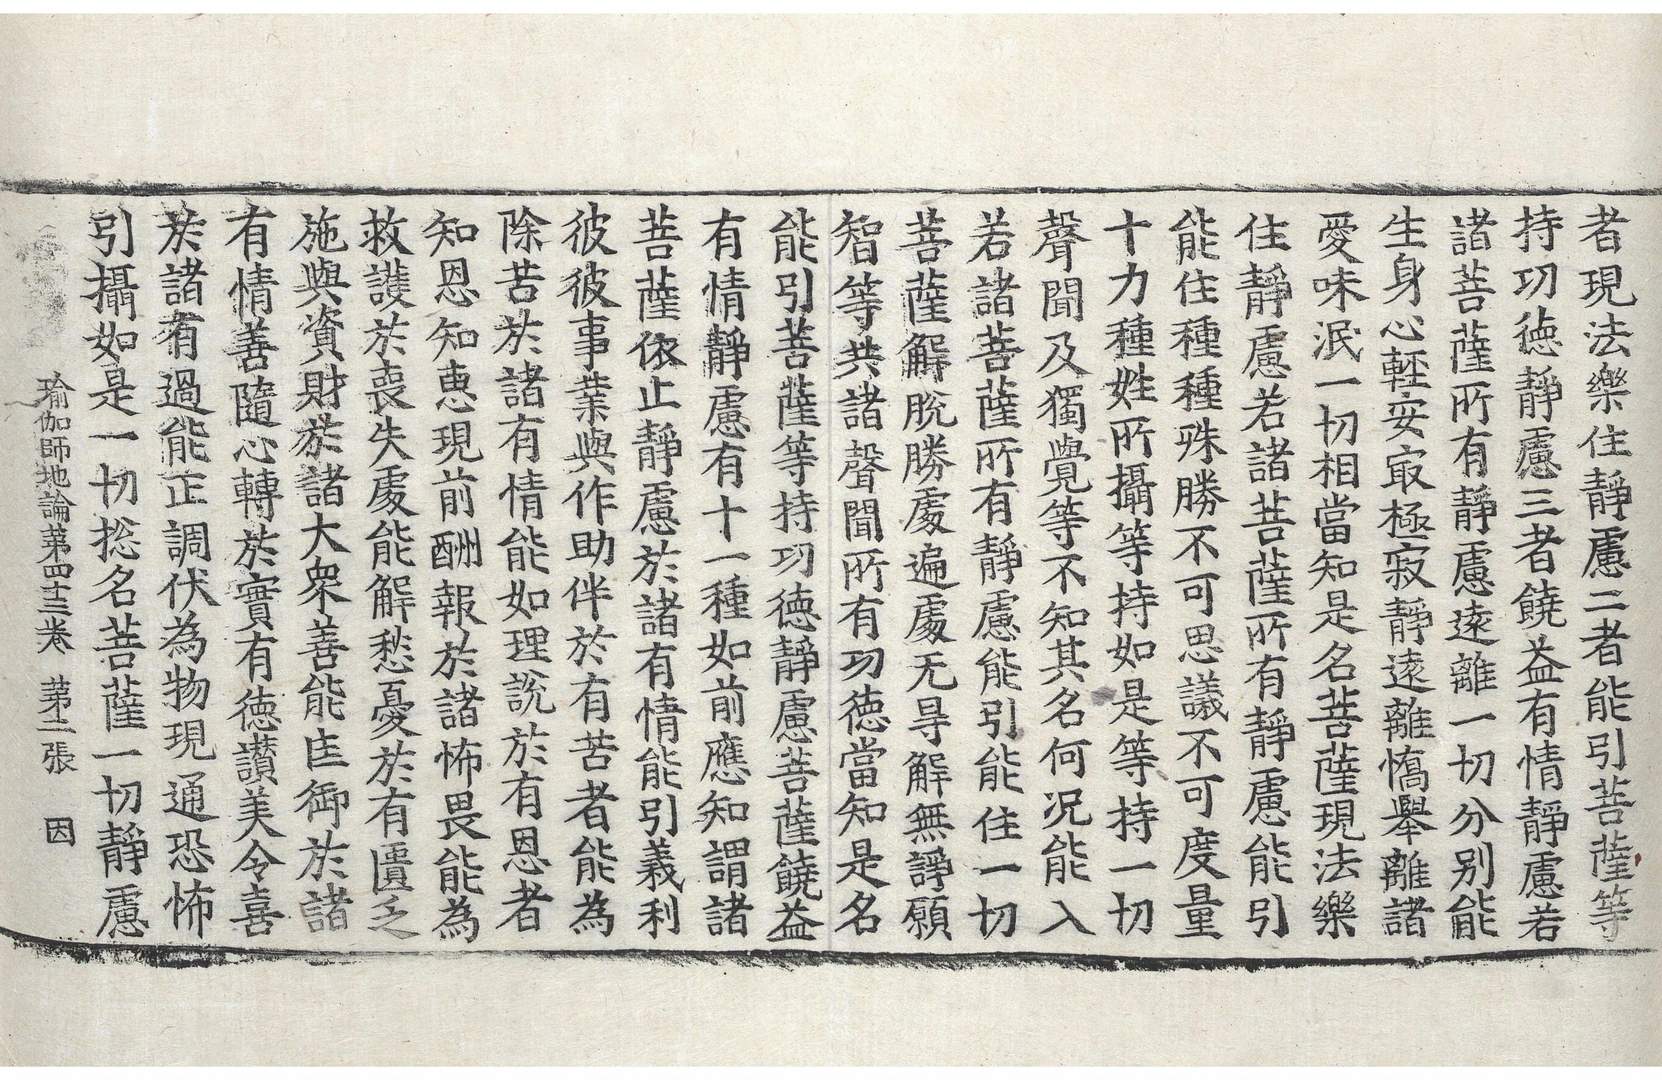 者現法樂住靜慮二者能引菩薩等
持功德靜慮三者饒益有情靜慮若
諸菩薩所有靜慮遠離一切分别能
生身心輕安㝡極寂靜遠離憍舉離諸
愛味泯一切相當知是名菩薩現法樂
住靜慮若諸菩薩所有靜慮能引
能住種種殊勝不可思議不可度量
十力種姓所攝等持如是等持一切
聲聞及獨覺等不知其名何況能入
若諸菩薩所有靜慮能引能住一切
菩薩解脫勝處遍處无㝵解無諍願
智等共諸聲聞所有功德當知是名
能引菩薩等持功德靜慮菩薩饒益
有情靜慮有十一種如前應知謂諸
菩薩依止靜慮於諸有情能引義利
彼彼事業與作助伴於有苦者能為
除苦於諸有情能如理說於有恩者
知恩知恵現前酬報於諸怖畏能為
救護於喪失處能解愁憂於有匱乏
施與資財於諸大衆善能匡御於諸
有情善隨心轉於實有德讃美令喜
於諸有過能正調伏為物現通恐怖
引攝如是一切捴名菩薩一切靜慮
瑜伽師地論第四十三卷 第二張 因